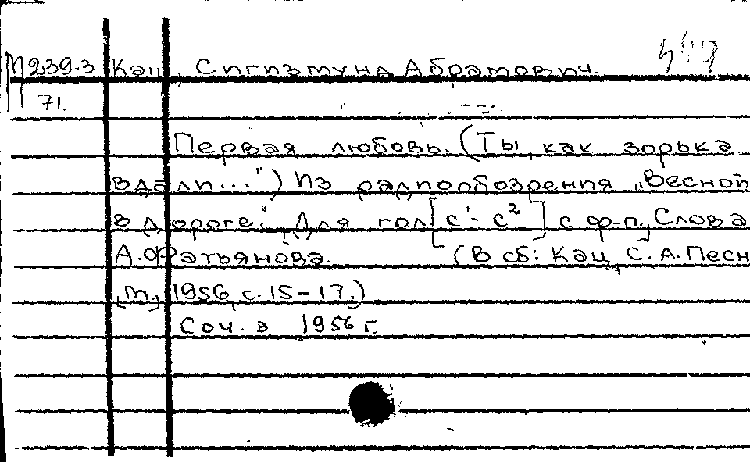 М239.3 Кац, Сигизмунд Абрамович.
71.
Первая любовь. (Ты, как зорька
вдали...") Из радиообозрения „Весной
в дороге". Для гол. [с¹- с²] с ф-п., Слова
А. Фатьянова. (В сб: Кац, С. А. Песн
, М., 1956, с. 15-17.)
Соч. в 1956 г.